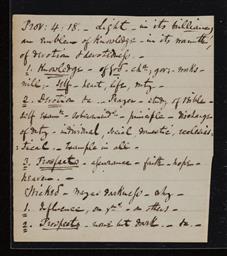 Prov: 4: 18. - Light - in its brilliancy,
an emblem of knowledge - in its warmth,
of devotion & devotedness. -
1. Knowledge - of
self - heart, life, duty -
2. Devotion &c - Prayer - study of Bible -
self exam - principle - discharge
of duty individual, social domestic, ecclesias-
tical. - Example in all -
3. Prospects - assurance - faith - hope -
heaven. -
Wicked - darkness - why -
1. Influence, on - on others -
2. Prospects - none but dark -